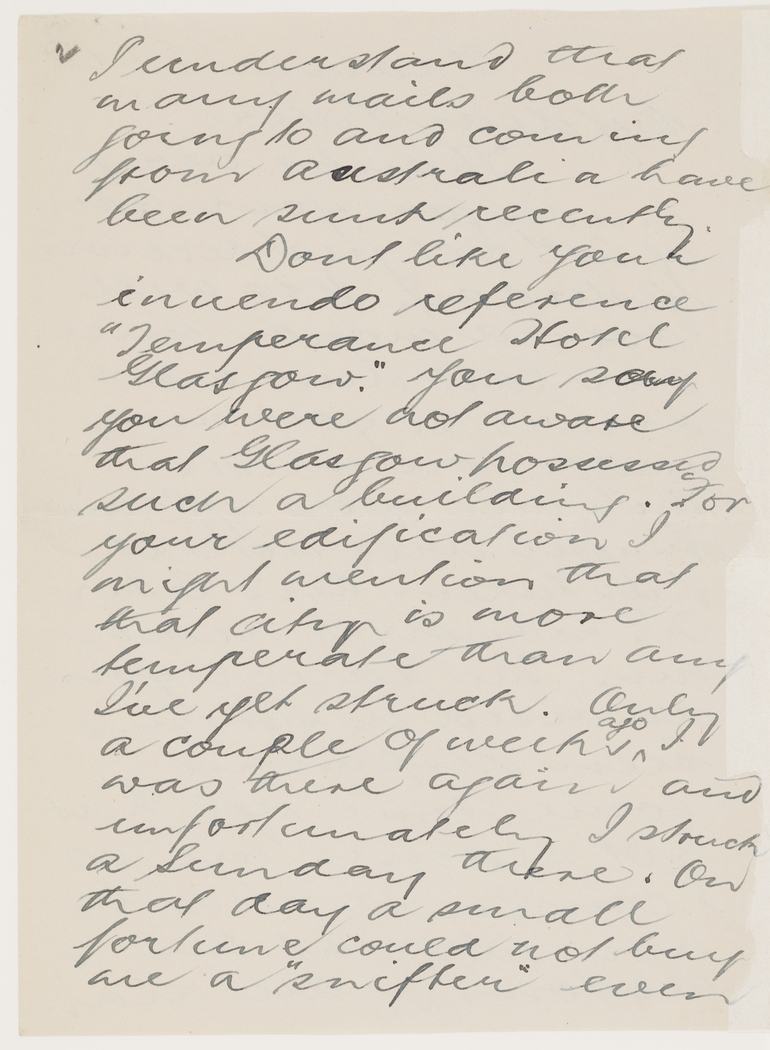 2 I understand that
many mails both
going to and coming
from Australia have
been sunk recently.
Dont like your
inuendo reference
"Temperance Hotel
Glasgow." You say
you were not aware
that Glasgow possessed
such a building. For
your edification I
might mention that
that city is more
temperate than any
I've yet struck. Only
a couple of weeks ago I
was there again and
unfortunately I struck
a Sunday there. On
that day a small
fortune could not buy
me a "snifter" even